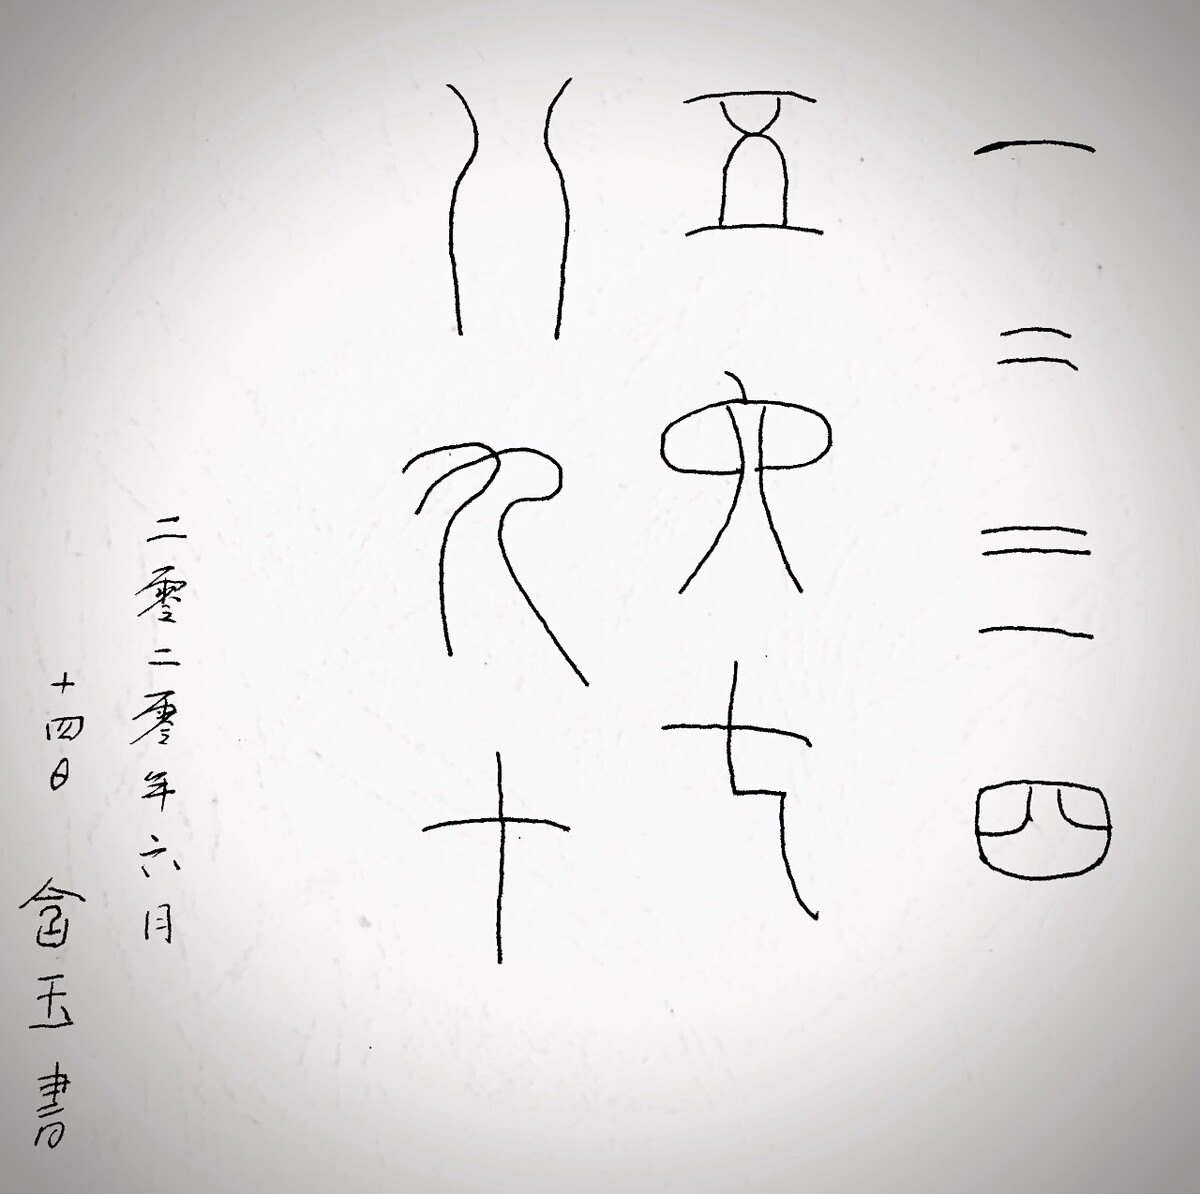 一二三四
五六七
八九十
二零二零年六月
十四日 玉書